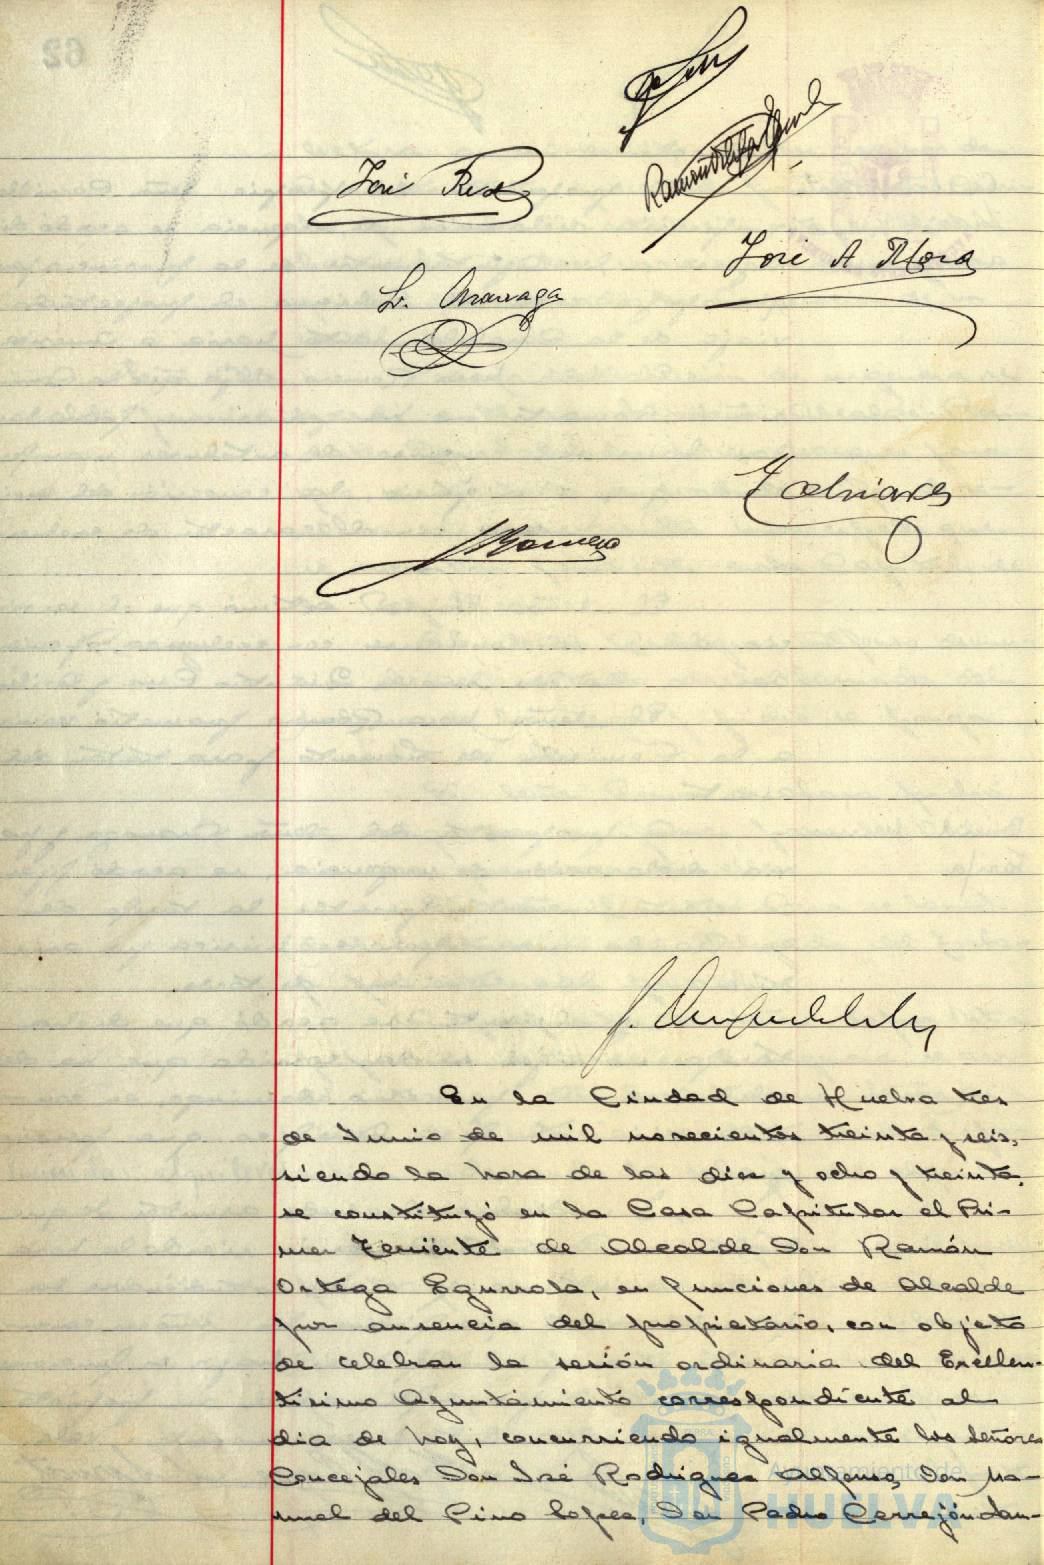 José
José A Mora
En la Ciudad de Huelva tres
de Junio de mil novecientos treinta y seis,
siendo la hora de las diez y ocho y treinta,
se constituyó en la Casa Capitular el Pri-
mer Teniente de Alcalde Don Ramón
Ortega Egurrola, en funciones de Alcalde
por ausencia del propietario, con objeto
de celebrar la sesión ordinaria del Excelen-
tísimo Ayuntamiento correspondiente al
día de hoy, concurriendo igualmente los señores
Concejales Don José Rodríguez Alfonso, Don Ma-
nuel del Pino López, Don Pedro Cerrejón
Ayuntamiento de
HUELVA